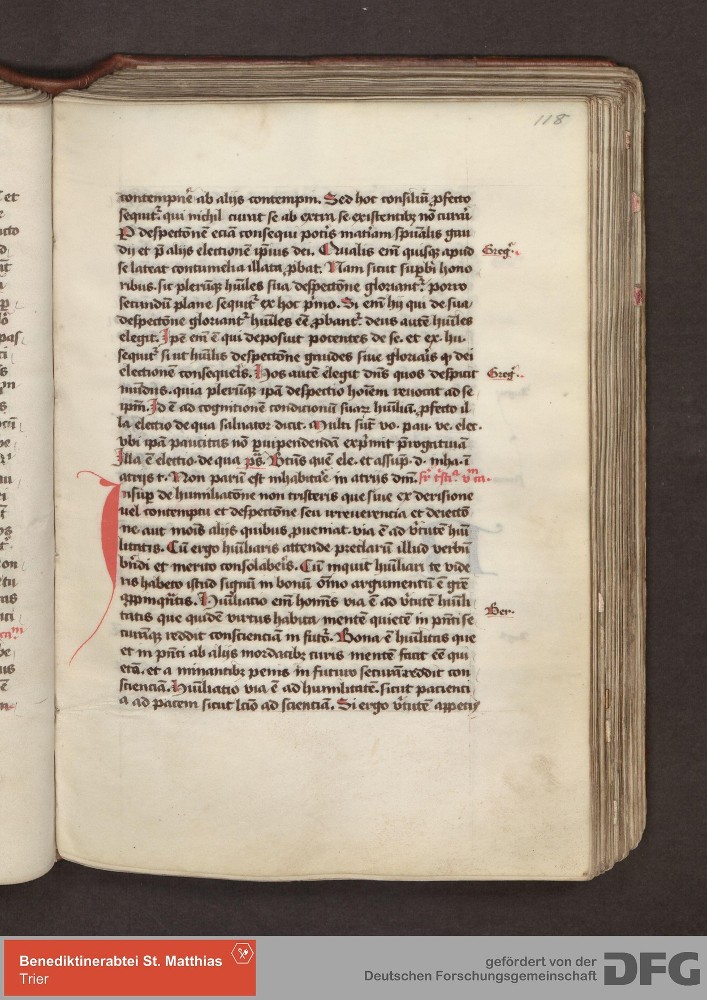 118
contempnē ab alijs contempni. Sed hoc consiliū ꝓfecto
sequitʳ qui nichil curat se ab extra se existentibꝫ nō curari
despectōnem eciā consequi potis materiam spūalis gau
dij et ꝑ alijs electionē ipsius dei. Qualis em̄ quisqꝫ apud
Gregꝰ.
se lateat contumelia illata ꝓbat. Nam sicut supbi hono
ribus. sic plerūqꝫ hūiles sua despectōne gloriantʳ. porro
secundū plane sequitʳ ex hoc pͥmo. Si em̄ hij qui de sua
despectōne gloriantʳ hūiles eē ꝓbantʳ. deus autē hūiles
elegit. Ipē em̄ ē qui deposuit potentes de se. et ex. hu.
sequitʳ si ut hūilis despectōne gaudes siue gloriaris qꝫ dei
electionē consequeris. Hos autē elegit dn̄s quos despicit
Gregꝰ.
mūdus. quia plerūqꝫ ipā despectio hoīem reuocat ad se
ipm̄. Id ē ad cognitionē condicionū suarꝫ ꝓfecto il
la electio de qua saluator dicit. Multi sūt vo. pau. ve. elec.
vbi ipā paucitas nō ꝑuipendendā exprimit prerogatiuā
Illa ē electio de qua pˢ. Btūs quē ele. et assūp. d. inha. ī
atrijs t. Non parū est inhabitaꝛe in atrijs dm̄.
Insuꝑ de humiliatōne non tristeris que siue ex derisione
uel contemptu et despectōne seu irreuerencia et deiectō
ne aut mois alijs quibus ꝓueniat. via ē ad v̄tutē hūi
litatis. Cū ergo hūiliaris attende preclarū illud verbū
bn̄di et merito consolaberis. Cū inquit hūiliari te vide
ris habeto istud signū in bonū om̄o argumentū ē grē
appinquātis. Hūiliatio em̄ hominis via ē ad v̄tutē hūili
Ber.
tatis que quidē virtus habita mentē quietē in pn̄ti se
curāqꝫ reddit conscienciā in futꝰ. Bona ē hūilitas que
et in pn̄ti ab alijs mordacibꝫ curis mentē facit eē qui
etā. et a minantibꝫ penis in futuro securā reddit con
scienciā. Hūiliatio via ē ad humilitatē. sicut pacienci
a ad pacem sicut lcīo ad scienciā. Si ergo v̄tutē appetis
Benediktinerabtei St. Matthias
Trier
gefördert von der
Deutschen Forschungsgemeinschaft
DFG